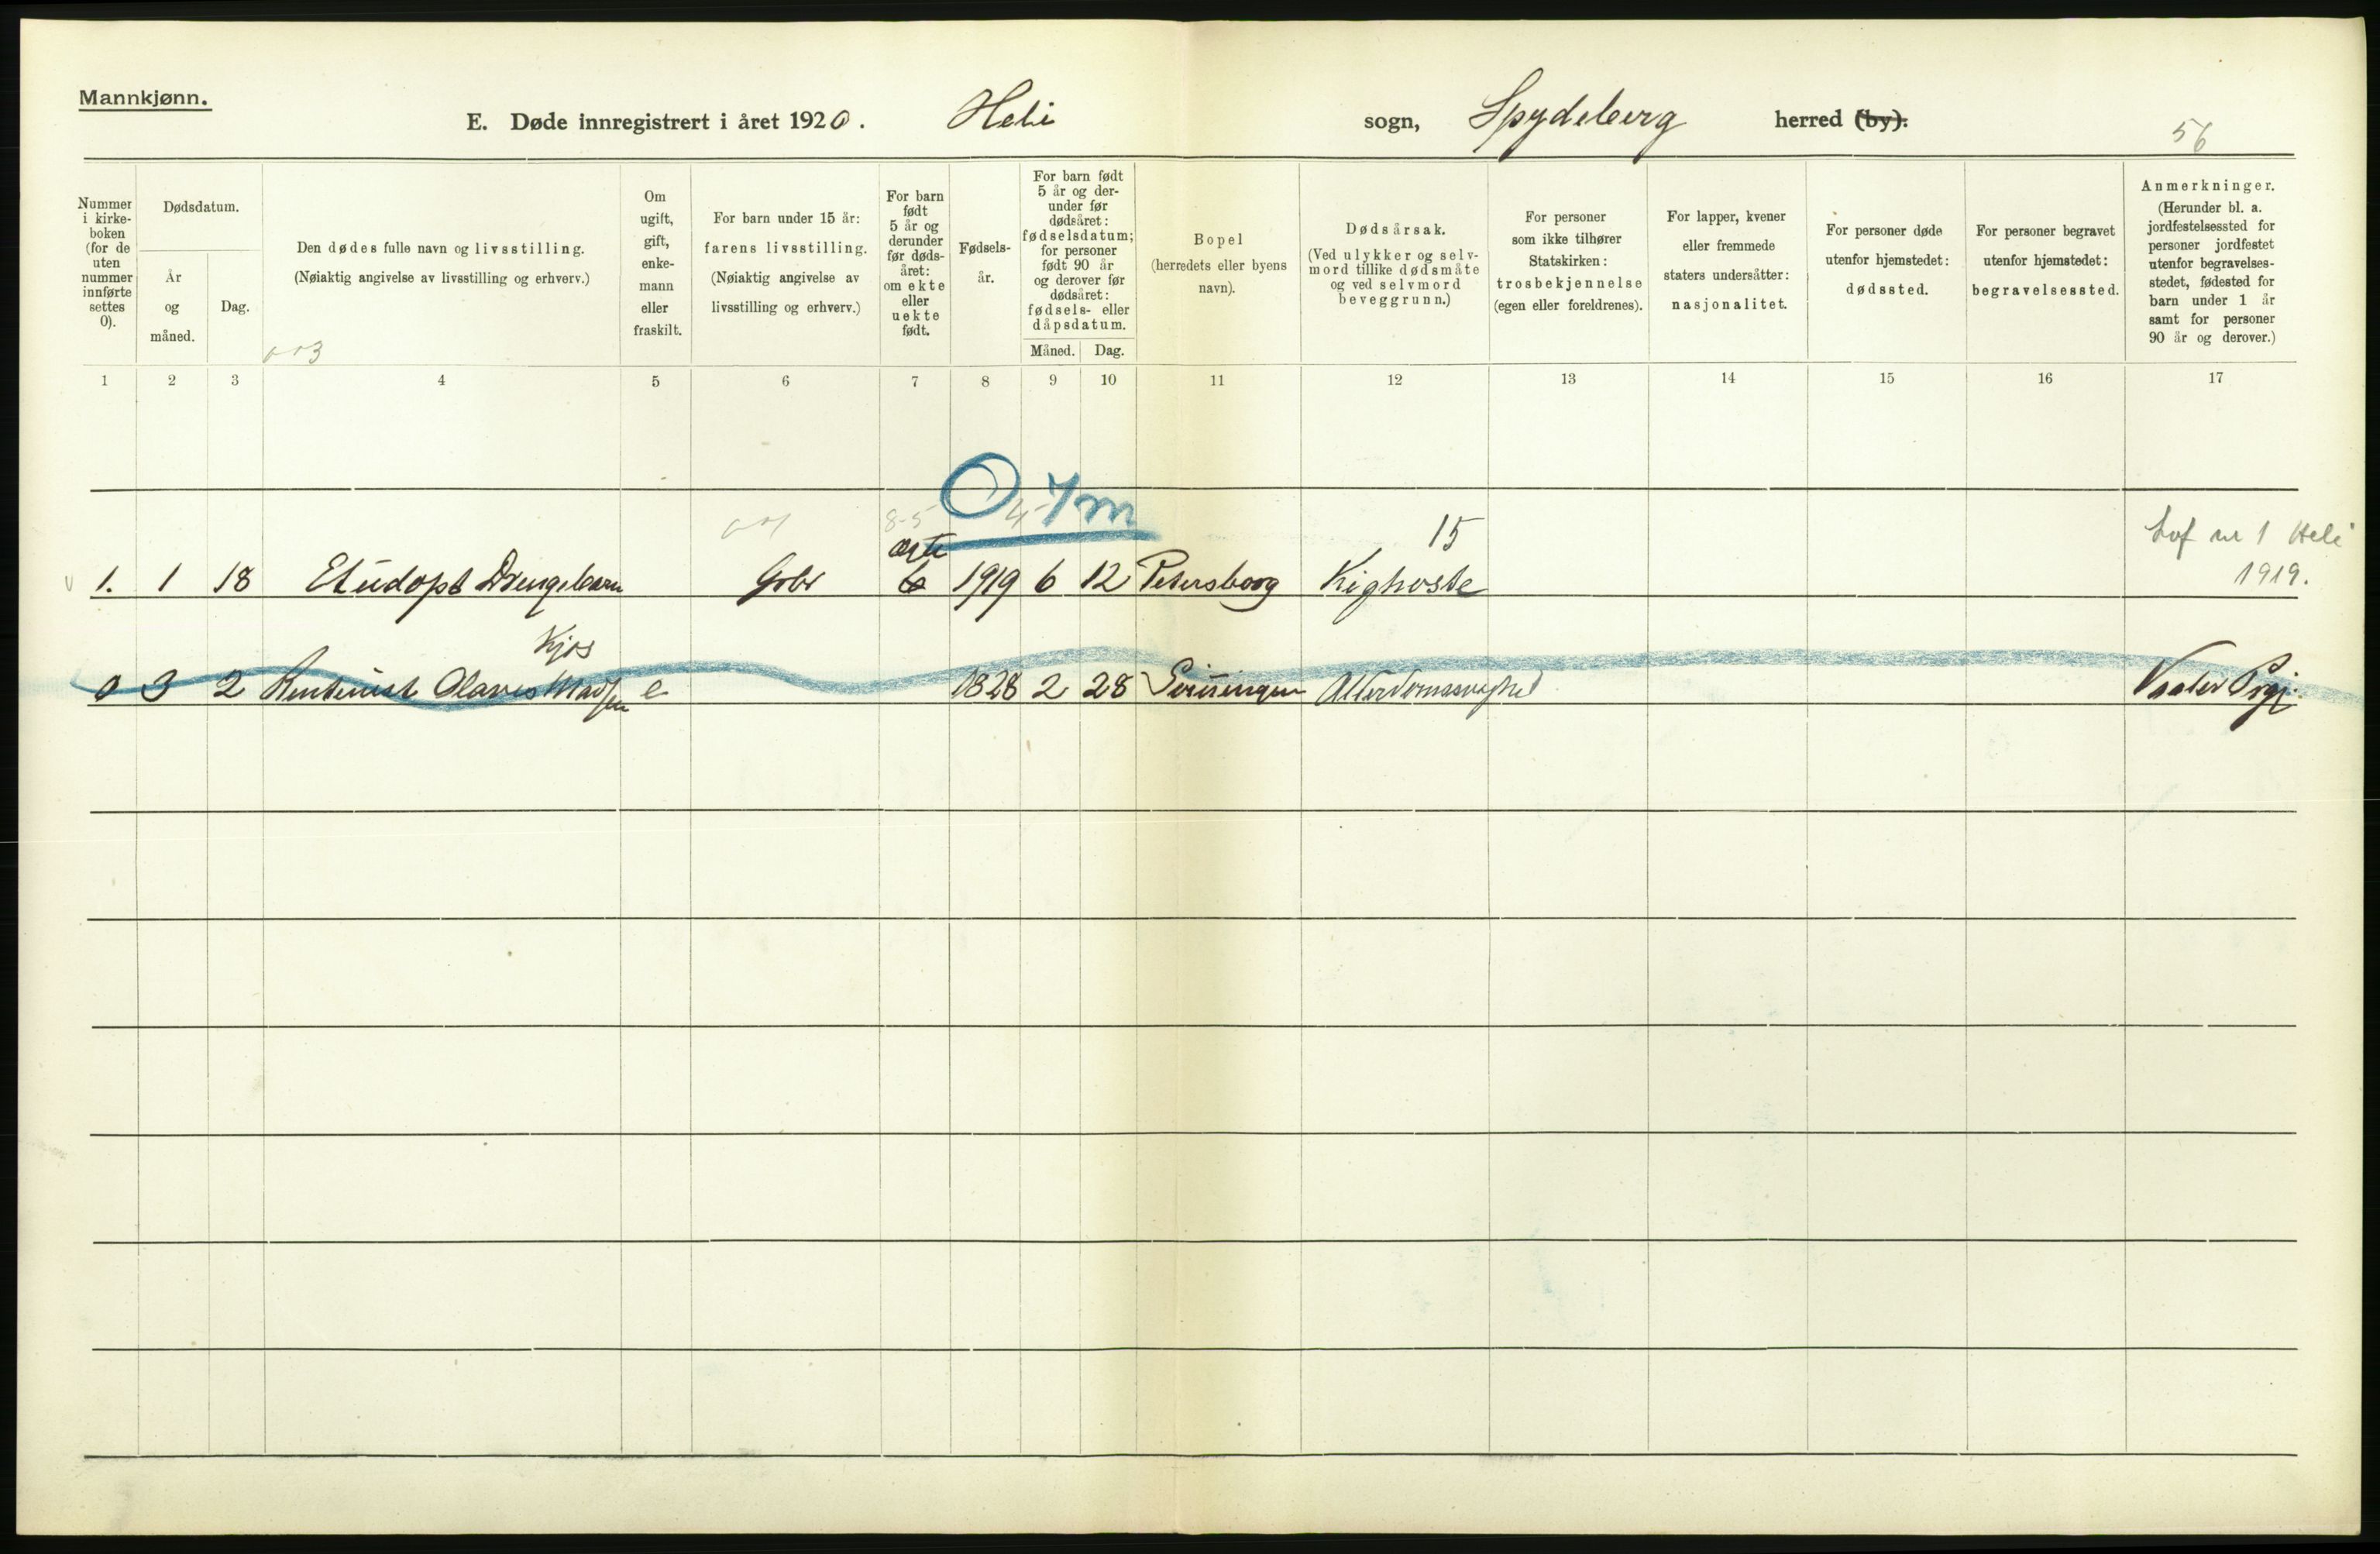 Mannkjønn.
E. Døde innregistrert i året 1920. Heli sogn, Spydeberg herred (by).
56
Nummer i kirke- boken (for de uten nummer innførte settes 0).
Dødsdatum.
År og måned.
Dag.
Den dødes fulle navn og livsstilling.
(Nøiaktig angivelse av livsstilling og erhverv.)
003
Om ugift, gift, enke- mann eller fraskilt.
For barn under 15 år:
farens livsstilling.
(Nøiaktig angivelse av livsstilling og erhverv.)
For barn født 5 år og derunder før døds- året: om ekte eller uekte født.
Fødsels- år.
For barn født 5 år og der- under før dødsåret: fødselsdatum; for personer født 90 år og derover før dødsåret: fødsels- eller dåpsdatum.
Måned. Dag.
Bopel
(herredets eller byens navn).
Dødsårsak.
(Ved ulykker og selv- mord tillike dødsmåte og ved selvmord beveggrunn.)
For personer som ikke tilhører Statskirken: trosbekjennelse (egen eller foreldrenes).
For lapper, kvener eller fremmede staters undersåtter: nasjonalitet.
For personer døde utenfor hjemstedet: dødssted.
For personer begravet utenfor hjemstedet: begravelsessted.
Anmerkninger.
(Herunder bl. a. jordfestelsessted for personer jordfestet utenfor begravelses- stedet, fødested for barn under 1 år samt for personer 90 år og derover.)
1 2 3 4 5 6 7 8 9 10 11 12 13 14 15 16 17
0 7m
8-5 4
ægte
15
nr 1 Heli
1. 1 18 Etudøpt Drengebarn Gbr 1919 6 12 Petersborg Kighoste 1919.
Kjos
0 3 2 Rentenist Olaves Madsen e 1828 2 28 Alderdomssvaghed Vaaler Prgj.